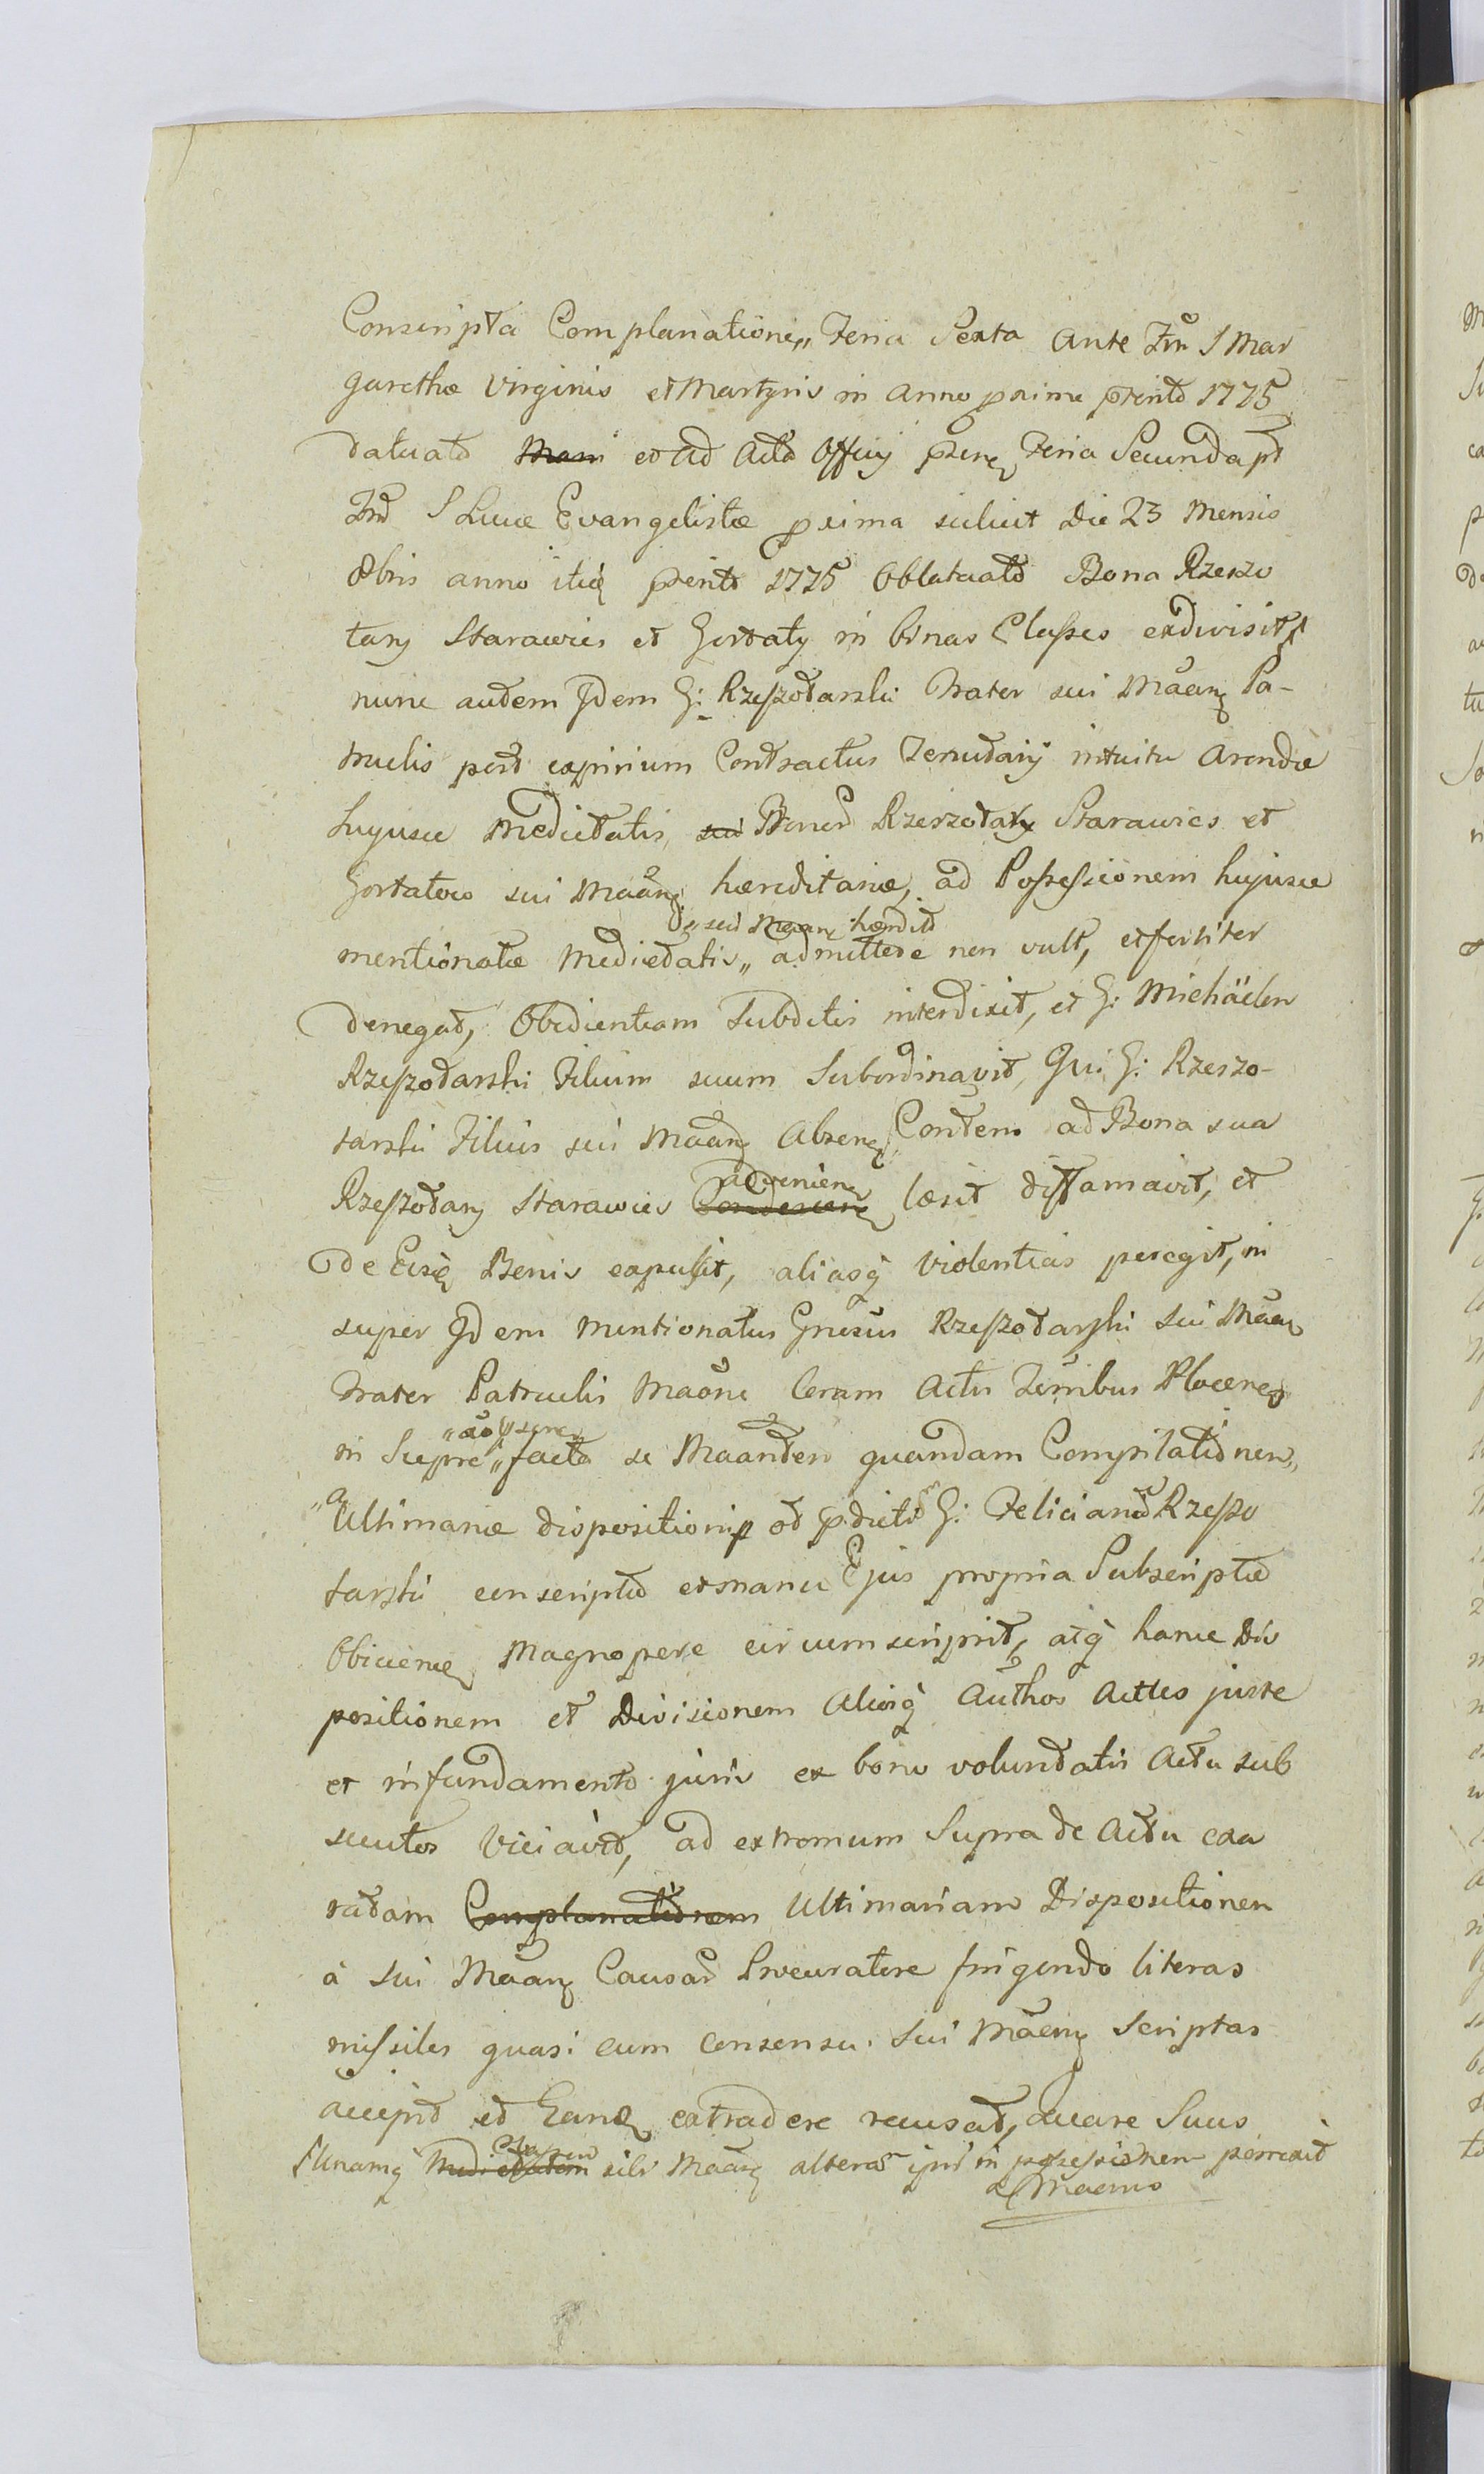 Conscripta Complanatione„ Feria Sexta Ante Fm̃ S Mar
garethæ Virginis et Martyris in anno primo p̃nti 1775
datuatõ et ad Acta Officij p̃sens Feria Secunda pt
Fm̃ S Lucæ Evangelistæ prima scilicet Die 23 Mensis
8bris anno itiq p̃enti 1775 Oblatuatõ Bona Rzeszo
tary Starawies et Gortaty in binas Classes exdivisit
nunc autem Idem G: Rzeszotarski Frater sui Maãns Pa-
truelis post expirium Contractus Tenutarij intuitu Arendæ
hujusce Medietatis, sui Bonor̃ Rzeszotary Starawies et
Gortatow sui Maãns hæreditariæ, ad Possessionem hujusce
„sui Maãns hæredit̃
mentionatæ Medietatis„ admittere non vult, et fortiter
denegat, Obedientiam Subditis interdixit, et G: Michäelem
Rzeszotarski Filium suum Subordinavit, Qui G: Rzeszo-
tarski Filius sui Maãns Absens Contem ad Bona sua
adveniens
Rzeszotary Starawies læsit diffamavit, et
de Eisq Bonis expulsit, aliasq violentias peregit, in
super Idem mentionatus Gnrosus Rzeszotarski sui Maãns
Frater Patruelis Maõne Coram Actis Tẽribus Plocens
in Supre„ facta se Maanten quandam Compilationem„
„a
Ultimariæ dispositionis ad p̃dicto G: Feliciano Rzeszo
tarski conscriptã et manu Ejus propria Subscriptã
Obiiciens Magnopere circumscripsit, atq hanc Dis
positionem et Divisionem Aliosq Authos Actus juste
et in fundamento juris ex bono voluntatis Actu sub
secutos Viciavit, ad extremum Supra de Actu exa
ratam Complanationem Ultimariam Dispositionem
à sui Maãns Causar̃ Procuratore fingendo literas
missiles quasi cum consensu sui Maãns Scriptas
accepit et Eandq extradere recusat, Quare Suus
Unamq Medietatem sibi Maãns alteram ipsi in possessionem porrexit
Maemus